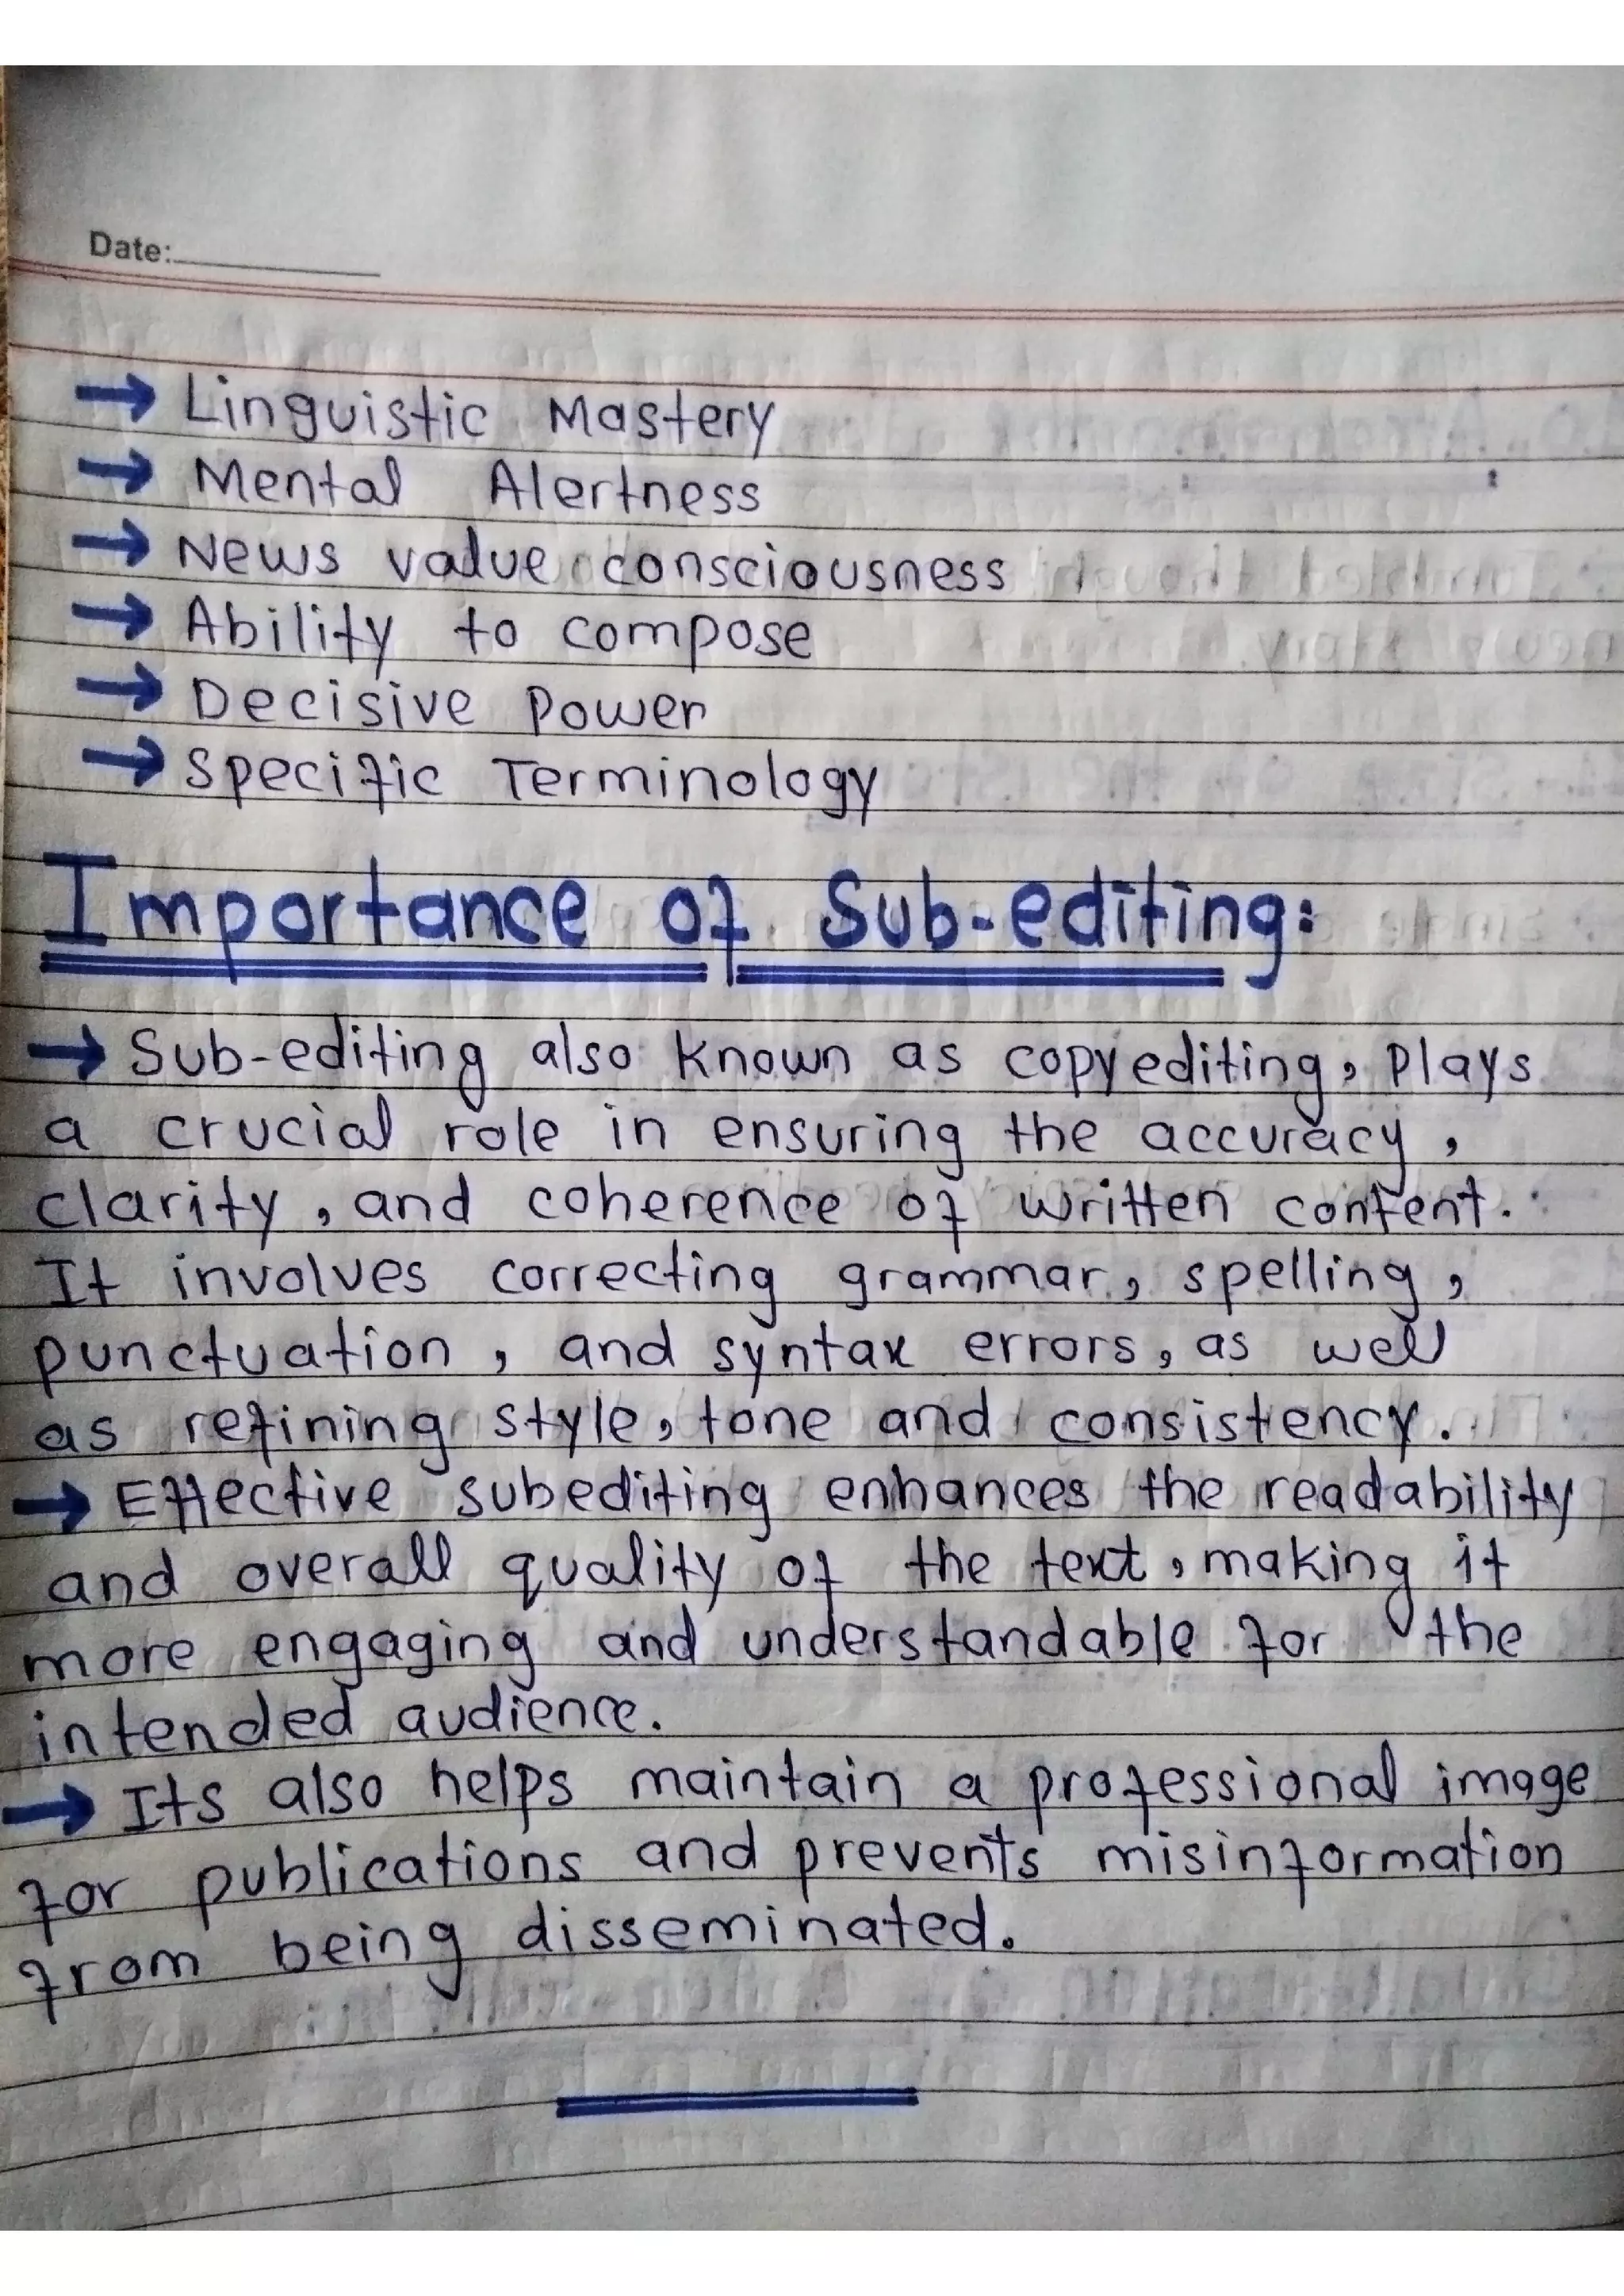 Date:
→ Linguistic Mastery
→ Mental Alertness
→ News value consciousness
→ Ability to compose
→ Decisive Power
→ Specific Terminology
Importance of Sub-editing:
→ Sub-editing also known as copyediting, plays
a crucial role in ensuring the accuracy,
clarity, and coherence of written content.
It involves correcting grammar, spelling,
punctuation, and syntax errors, as well
as refining style, tone and consistency.
→ Effective subediting enhances the readability
and overall quality of the text, making it
more engaging and understandable for the
intended audience.
→ Its also helps maintain a professional image
for publications and prevents misinformation
from being disseminated.